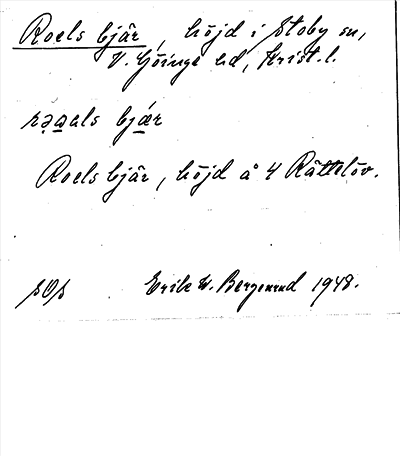 Roels bjär, höjd i Stoby sn,
V. Göinge hd, Krist. l.
bjær
Roels bjär, höjd å 4 Rättelöv.
Erik W. Bergenrud 1948.